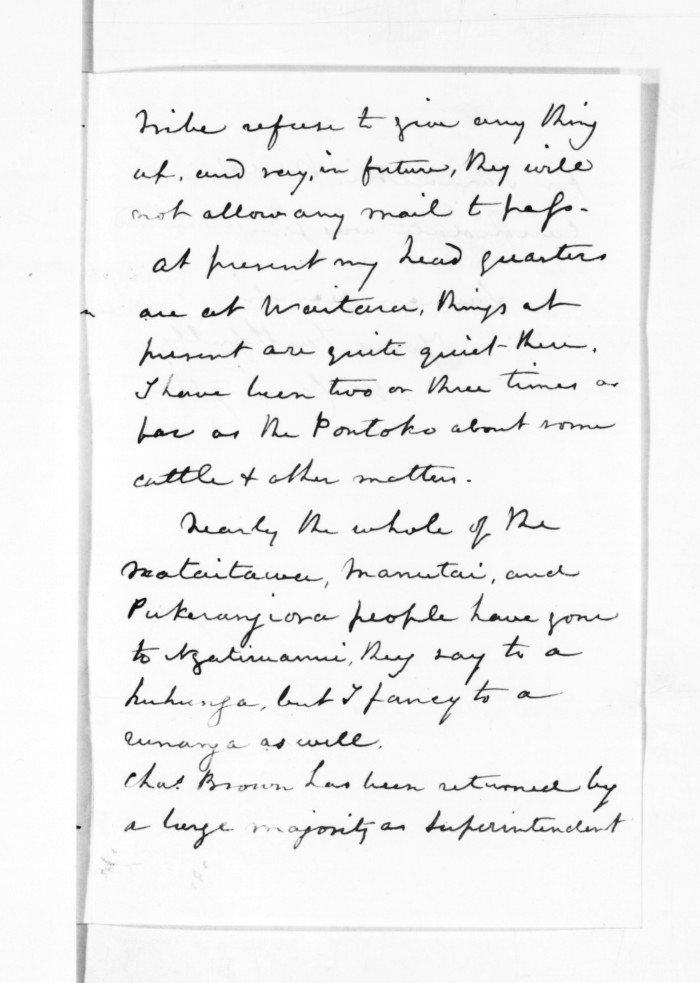 tribe refuse to give any thing
up, and say, in future, they will
not allow any mail to pass.
at present my head quarters
are at Waitara, things at
present are quite quiet there.
I have been two or three times as
far as the Pontoko about some
cattle & other matters.
Nearly the whole of the
Mataitawa, Manutai, and
Pukerangiora people have gone
to Ngatiruanui, they say to a
huhunga, but I fancy to a
runanga as well.
Chas. Brown has been returned by
a large majority as Superintendent